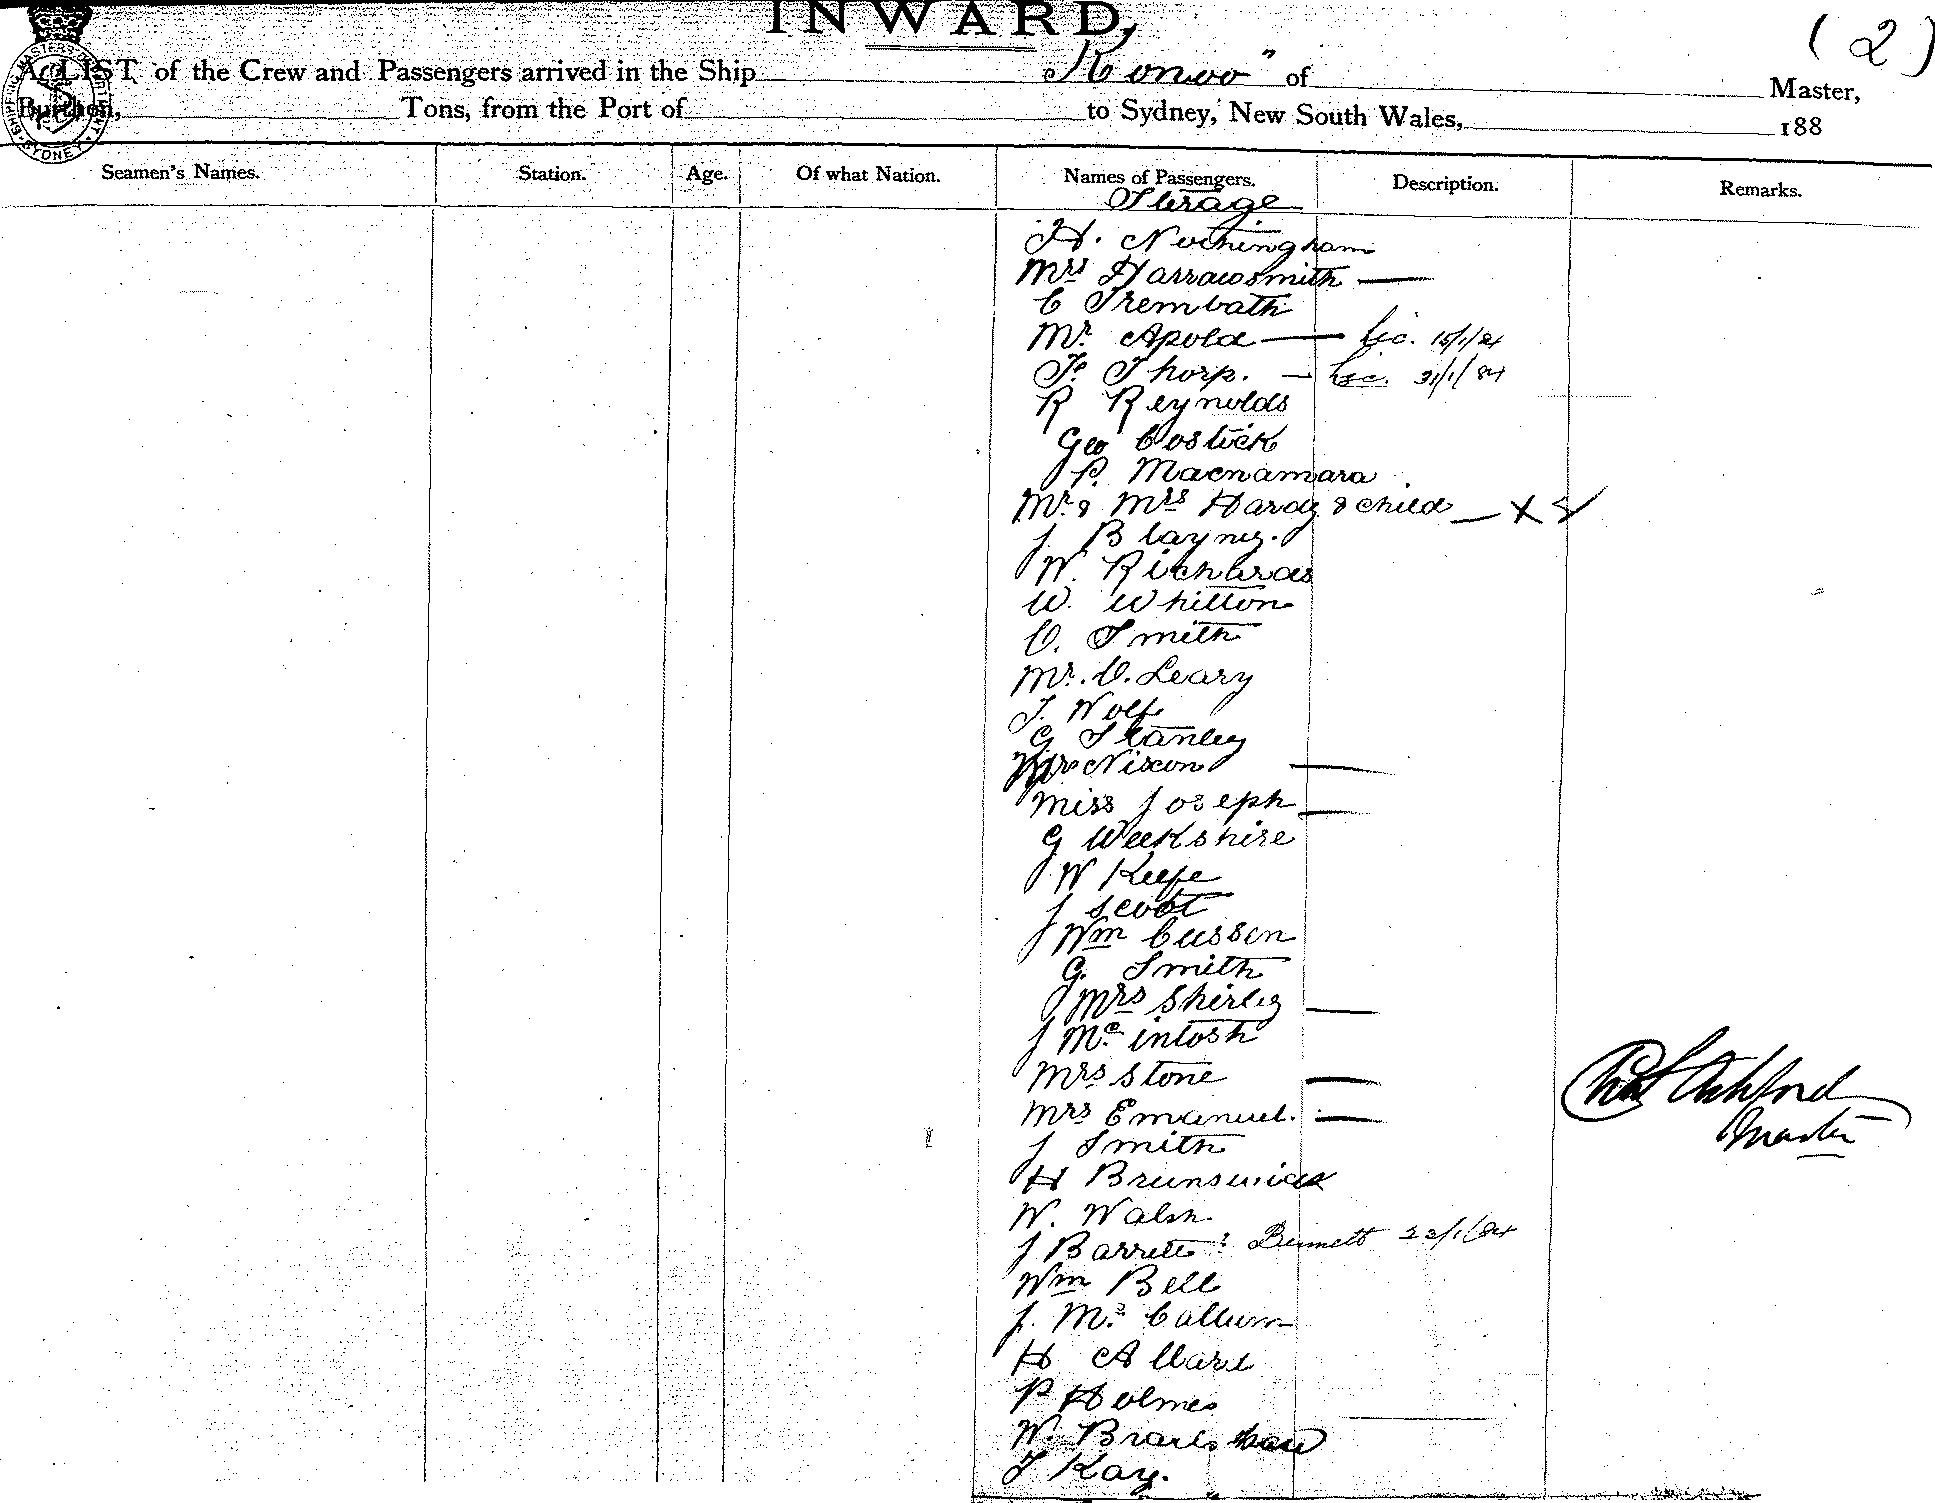 INWARD,
(2)
A LIST of the Crew and Passengers arrived in the Ship "Konoo" of Master,
Burthen, Tons, from the Port of to Sydney, New South Wales, 188
Seamen's Names. Station. Age. Of what Nation. Names of Passengers. Description. Remarks.
Sterage
H. Nottingham
Mrs Harrowsmith —
C Trembath
Mr. Apold — Lic. 15/1/84
F. Thorp. — Lic. 31/1/84
R Reynolds
Geo Costick
P. Macnamara
Mr. & Mrs Hardy & child — X
J. Blayney.
W. Richards
W. Whitton
C. Smith
Mr. O. Leary
J. Wolf
G Stanley
Mrs Nixon —
Miss Joseph —
G Weekshire
W Keefe
J Scott
Wm Cussen
G. Smith
Mrs Shirley —
J Mc intosh
Mrs Stone —
Mrs Emanuel. —
J Smith
H Brunswick
W. Walsh
J Barrett ? Bennett 22/1/84
Wm Bell
J. Mc Callum
H Allard
P Holmes
W. Bradshaw
J Kay.
Ashford
Master
SYDNEY